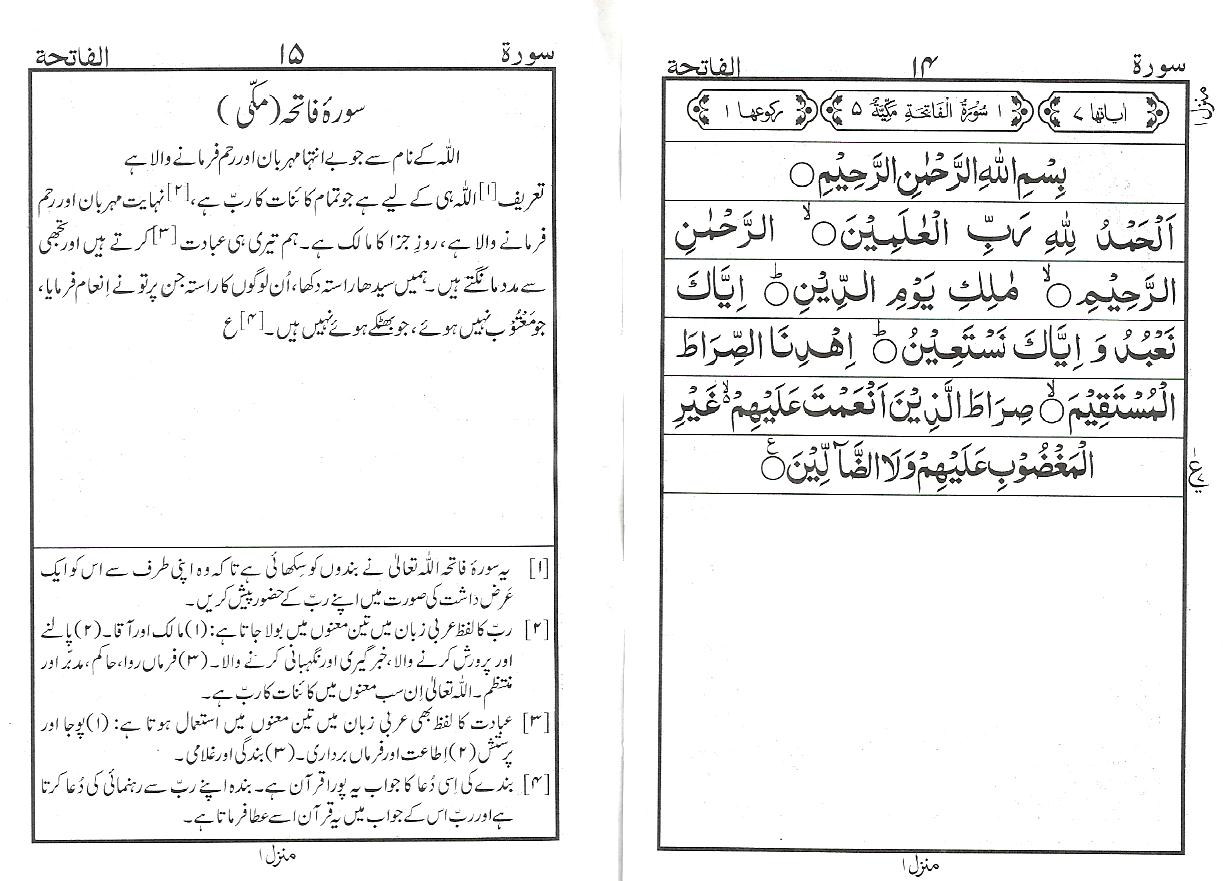 سورة ۱۴ الفاتحة
منزل ۱
اياتها ۷
۱ سُوْرَةُ الْفَاتِحَةِ مَكِّيَّةٌ ۵
ركوعها ۱
بِسْمِ اللهِ الرَّحْمٰنِ الرَّحِيْمِ○
اَلْحَمْدُ لِلّٰهِ رَبِّ الْعٰلَمِيْنَ○ۙ الرَّحْمٰنِ
الرَّحِيْمِ○ۙ مٰلِكِ يَوْمِ الدِّيْنِ○ؕ اِيَّاكَ
نَعْبُدُ وَ اِيَّاكَ نَسْتَعِيْنُ○ؕ اِهْدِنَا الصِّرَاطَ
الْمُسْتَقِيْمَ○ۙ صِرَاطَ الَّذِيْنَ اَنْعَمْتَ عَلَيْهِمْ۬ۙ غَيْرِ
الْمَغْضُوْبِ عَلَيْهِمْ وَلَا الضَّآلِّيْنَ○ع
منزل ۱
سورة ۱۵ الفاتحة
سورۂ فاتحہ (مکّی)
اللہ کے نام سے جو بے انتہا مہربان اور رحم فرمانے والا ہے
تعریف[۱] اللہ ہی کے لیے ہے جو تمام کائنات کا ربّ ہے،[۲] نہایت مہربان اور رحم
فرمانے والا ہے، روزِ جزا کا مالک ہے۔ ہم تیری ہی عبادت[۳] کرتے ہیں اور تجھی
سے مدد مانگتے ہیں۔ ہمیں سیدھا راستہ دکھا، اُن لوگوں کا راستہ جن پر تو نے اِنعام فرمایا،
جو مَعْتُوْب نہیں ہوئے، جو بھٹکے ہوئے نہیں ہیں۔[۴] ع
[۱] یہ سورۂ فاتحہ اللہ تعالیٰ نے بندوں کو سِکھائی ہے تاکہ وہ اپنی طرف سے اس کو ایک
عَرض داشت کی صورت میں اپنے ربّ کے حضور پیش کریں۔
[۲] ربّ کا لفظ عربی زبان میں تین معنوں میں بولا جاتا ہے: (۱) مالک اور آقا۔ (۲) پالنے
اور پرورش کرنے والا، خبر گیری اور نگہبانی کرنے والا۔ (۳) فرماں روا، حاکم، مدبّر اور
منتظم۔ اللہ تعالیٰ اِن سب معنوں میں کائنات کا ربّ ہے۔
[۳] عبادت کا لفظ بھی عربی زبان میں تین معنوں میں استعمال ہوتا ہے: (۱) پوجا اور
پرستش (۲) اِطاعت اور فرماں برداری۔ (۳) بندگی اور غلامی۔
[۴] بندے کی اِسی دُعا کا جواب یہ پورا قرآن ہے۔ بندہ اپنے ربّ سے رہنمائی کی دُعا کرتا
ہے اور ربّ اس کے جواب میں یہ قرآن اسے عطا فرماتا ہے۔
منزل ۱